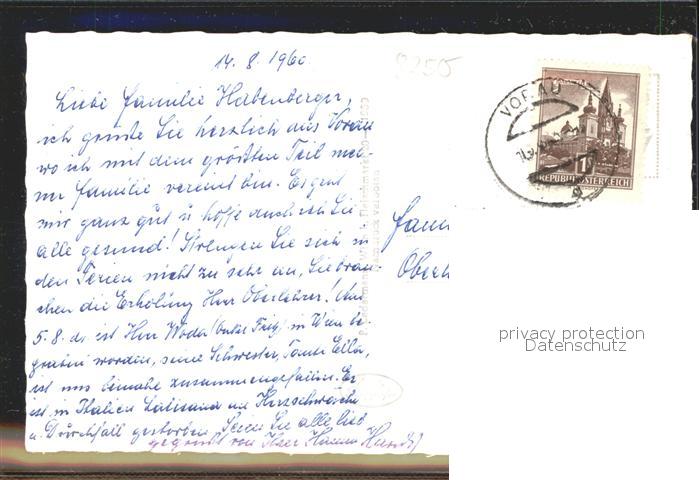 14. 8. 1960.
Liebe Familie Habenberger,
ich grüße Sie herzlich aus Vorau
wo ich mit dem größten Teil mei-
ner Familie vereint bin. Es geht
mir ganz gut u. hoffe auch daß Sie
alle gesund! Strengen Sie sich in
den Ferien nicht zu sehr an, Sie brau-
chen die Erholung Herr Oberlehrer! Am
5. 8. ist Herr Woda (Onkel Fritz) in Wien be-
graben worden, seine Schwester, Tante Ella,
ist uns beinahe zusammengefallen. Er
ist in Italien an Herzschwäche
u. Durchfall gestorben. Seien Sie alle lieb
gegrüßt von Ihrer
VORAU
1
REPUBLIK ÖSTERREICH
Fami
Oberl
privacy protection
Datenschutz